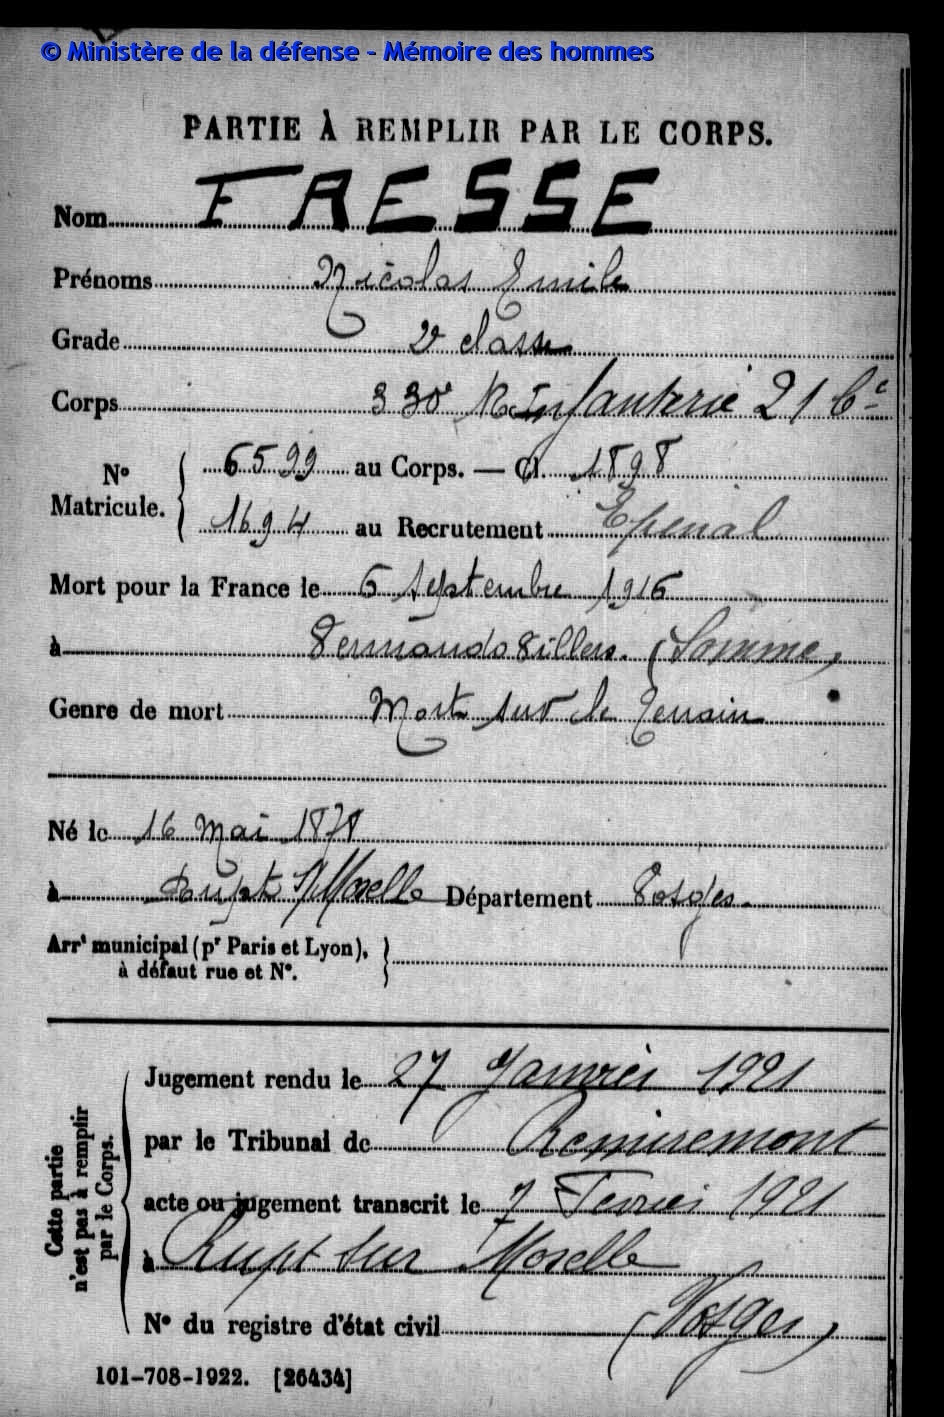 © Ministère de la défense - Mémoire des hommes
PARTIE À REMPLIR PAR LE CORPS.
Nom FRESSE
Prénoms Nicolas Emile
Grade 2e classe
Corps 330e R. Infanterie 21 Cie
N° Matricule. { 6599 au Corps. — Cl. 1898
1694 au Recrutement Epinal
Mort pour la France le 6 Septembre 1916
à Vermandovillers. (Somme)
Genre de mort Mort sur le terrain
Né le 16 Mai 1878
à Rupt s/Moselle Département Vosges.
Arrt municipal (pr Paris et Lyon), }
à défaut rue et N°.
Cette partie
n'est pas à remplir
par le Corps.
Jugement rendu le 27 Janvier 1921
par le Tribunal de Remiremont
acte ou jugement transcrit le 7 Fevrier 1921
à Rupt sur Moselle
N° du registre d'état civil (Vosges)
101-708-1922. [26434]